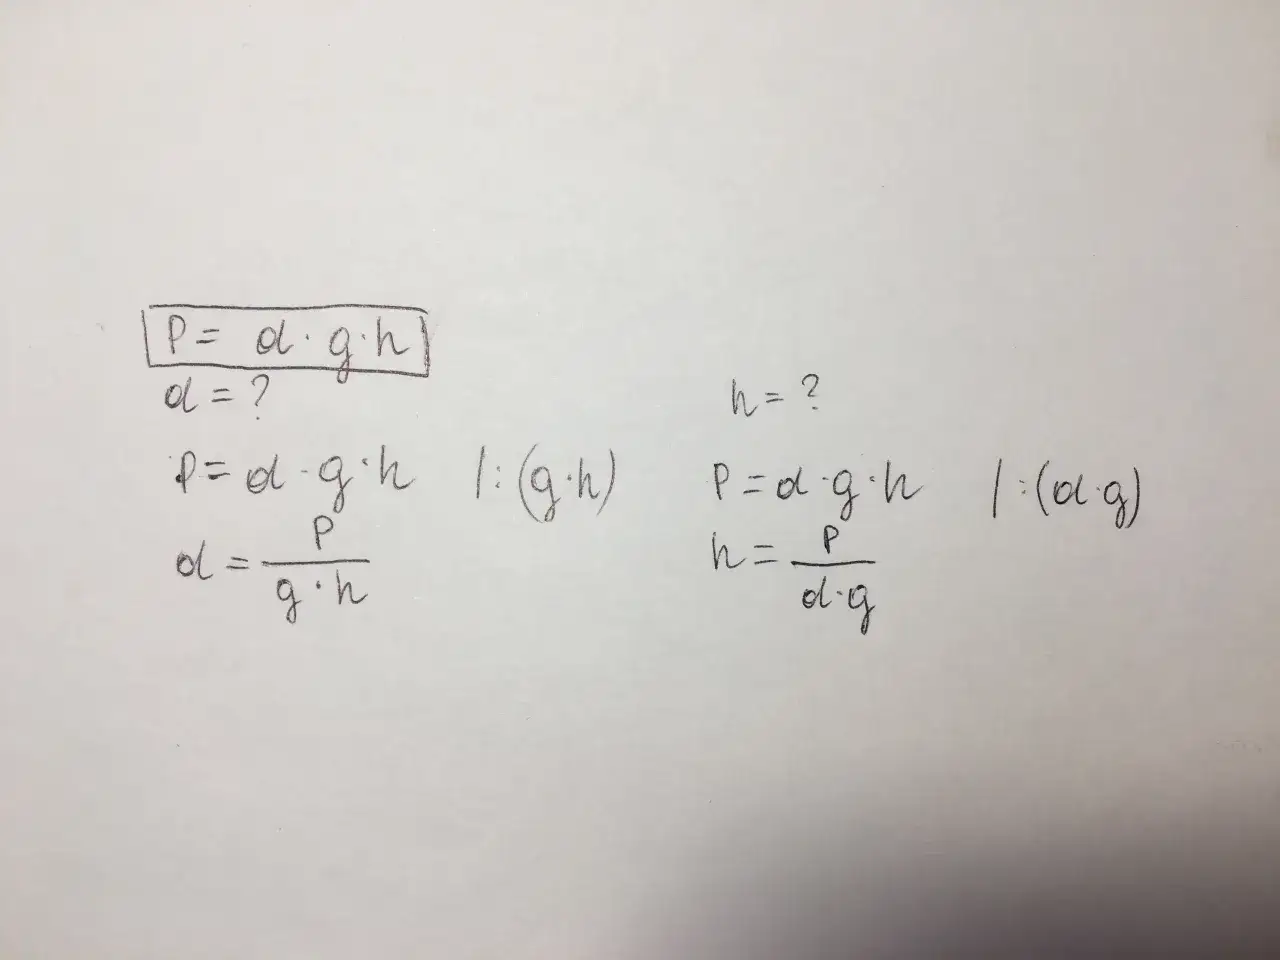 P = d · g · h
d = ?
P = d · g · h |: (g · h)
d = P / (g · h)
h = ?
P = d · g · h |: (d · g)
h = P / (d · g)